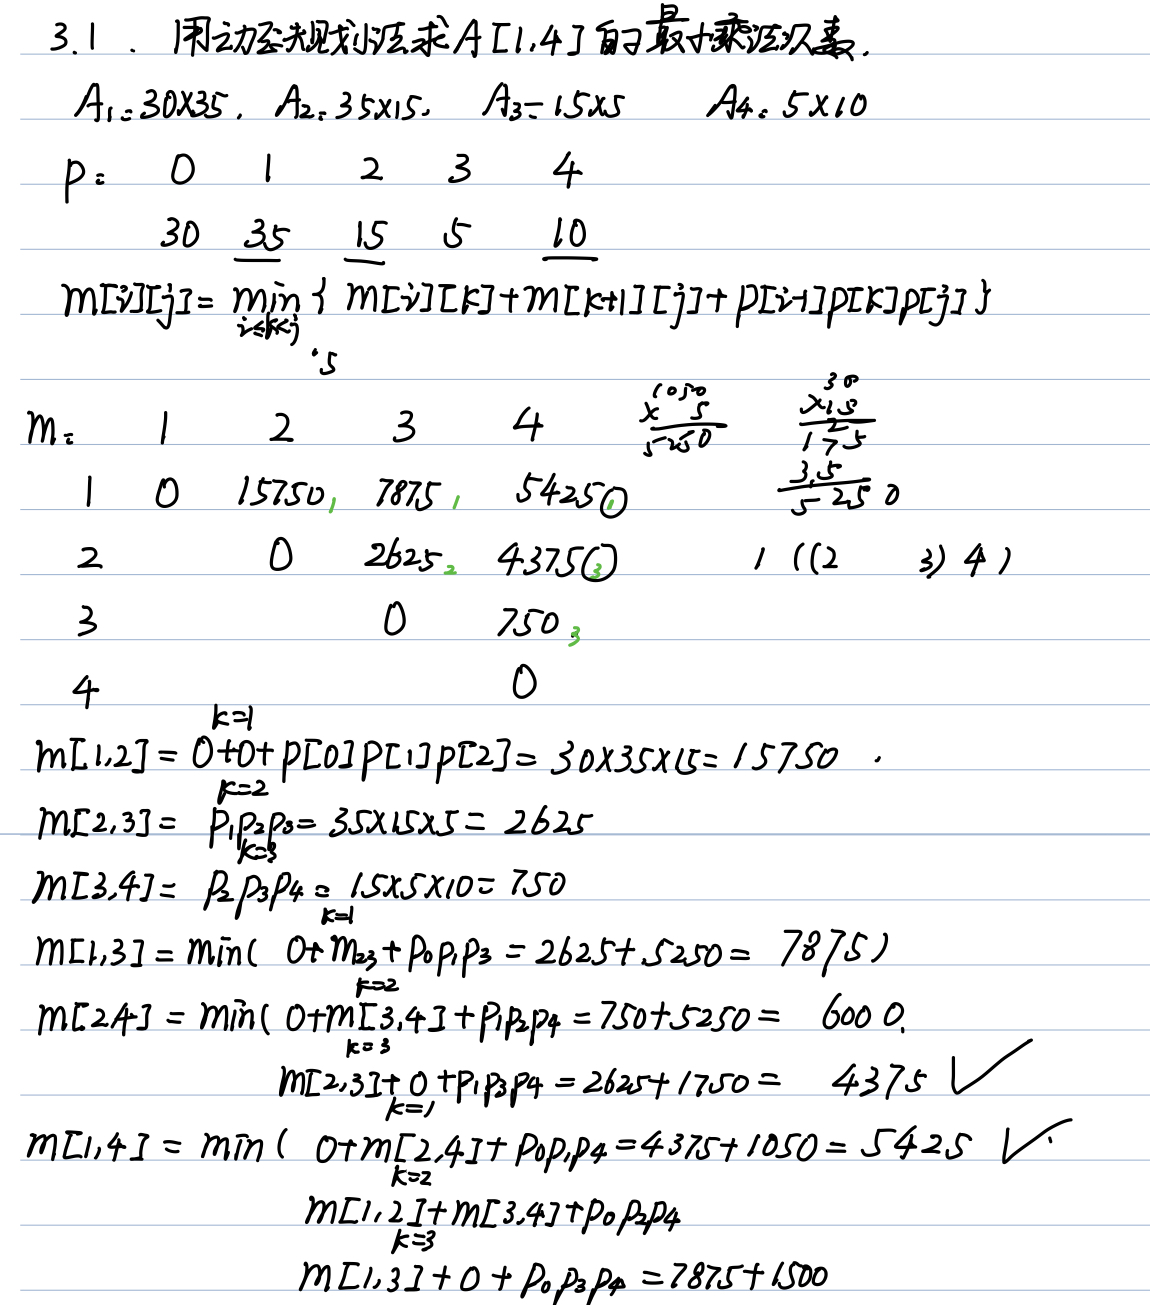 3.1. 用动态规划法求A[1,4]的最小乘法次数.
A₁:30×35. A₂:35×15. A₃=15×5 A₄:5×10
p: 0 1 2 3 4
30 35 15 5 10
m[i][j]= min { m[i][k]+m[k+1][j]+p[i-1]p[k]p[j] }
i≤k<j
.5
m: 1 2 3 4
1 0 15750, 1 7875, 1 5425, 1
2 0 2625, 2 4375, 3
3 0 750, 3
4 0
1050
× 5
5250
30
×15
175
3.5
5250
1 ((2 3) 4)
k=1
m[1,2] = 0+0+p[0]p[1]p[2]= 30×35×15= 15750 .
k=2
m[2,3] = p₁p₂p₃= 35×15×5 = 2625
k=3
m[3,4] = p₂p₃p₄ = 15×5×10= 750
k=1
m[1,3] = min( 0+m₂₃+p₀p₁p₃ = 2625+5250= 7875)
k=2
m[2,4] = min( 0+m[3,4]+p₁p₂p₄ =750+5250 = 6000.
k=3
m[2,3]+0+p₁p₃p₄ = 2625+1750 = 4375 ✓
k=1
m[1,4] = min ( 0+m[2,4]+p₀p₁p₄ =4375+1050 = 5425 ✓.
k=2
m[1,2]+m[3,4]+p₀p₂p₄
k=3
m[1,3]+0+p₀p₃p₄ =7875+1500